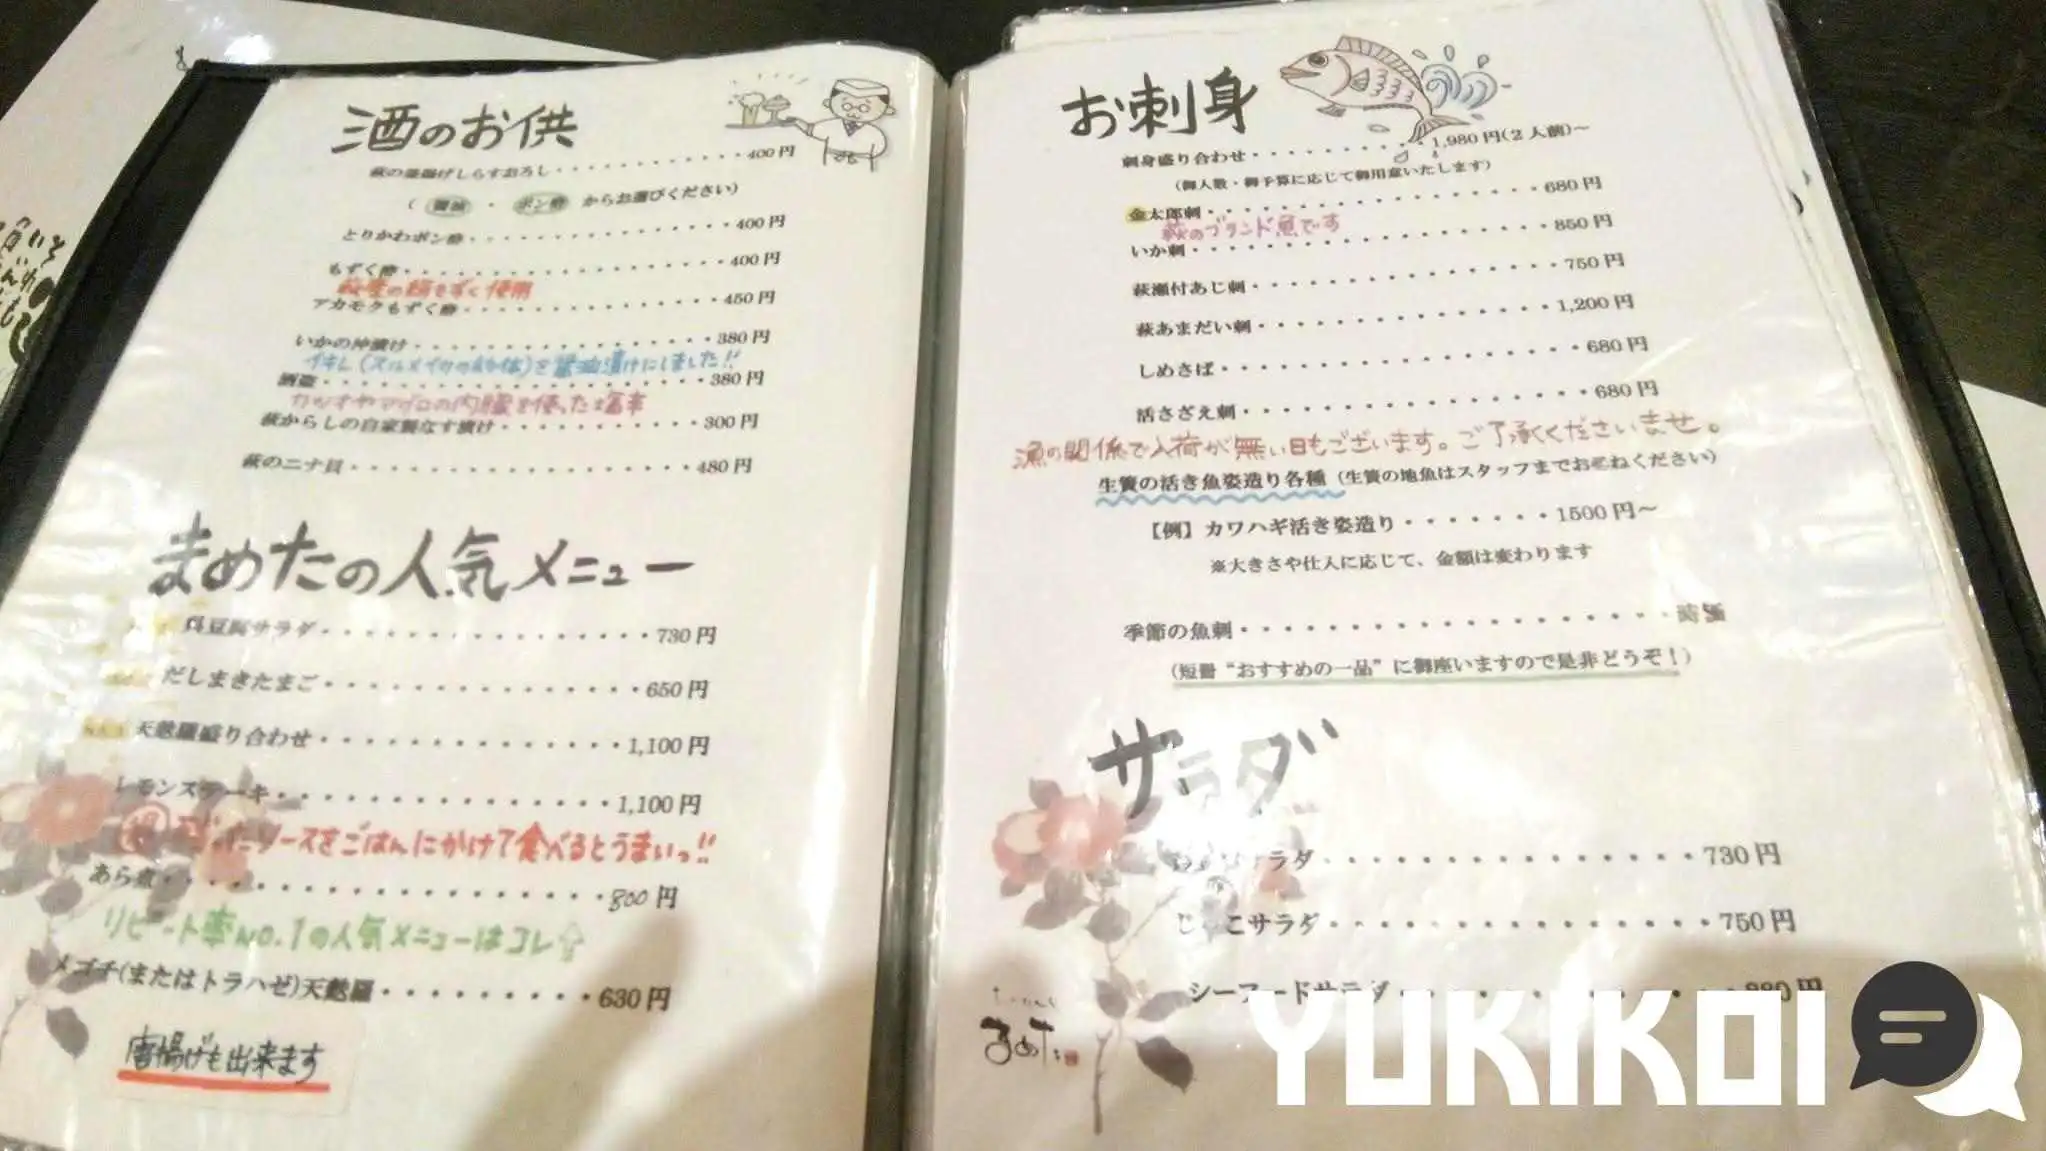 酒のお供
萩の釜揚げしらすおろし・・・400円
( 醤油 ・ ポン酢 からお選びください)
とりかわポン酢・・・400円
もずく酢・・・400円
もずく使用
アカモクもずく酢・・・450円
いかの沖漬け・・・380円
(スルメイカの幼体)を醤油漬けにしました!!
酒盗・・・380円
カツオやマグロの内臓を使った塩辛
萩からしの自家製なす漬け・・・300円
萩のニナ貝・・・480円
まめたの人気メニュー
呉豆腐サラダ・・・730円
だしまきたまご・・・650円
天麩羅盛り合わせ・・・1,100円
レモンステーキ・・・1,100円
ソースをごはんにかけて食べるとうまいっ!!
あら煮・・・800円
リピート率No.1の人気メニューはコレ⇧
メゴチ(またはトラハゼ)天麩羅・・・630円
唐揚げも出来ます
お刺身
刺身盛り合わせ・・・1,980円(2人前)~
(御人数・御予算に応じて御用意いたします)
金太郎刺・・・680円
萩のブランド魚です
いか刺・・・850円
萩瀬付あじ刺・・・750円
萩あまだい刺・・・1,200円
しめさば・・・680円
活さざえ刺・・・680円
漁の関係で入荷が無い日もございます。ご了承くださいませ。
生簀の活き魚姿造り各種(生簀の地魚はスタッフまでお尋ねください)
【例】カワハギ活き姿造り・・・1500円~
※大きさや仕入に応じて、金額は変わります
季節の魚刺・・・時価
(短冊“おすすめの一品”に御座いますので是非どうぞ!)
サラダ
サラダ・・・730円
じゃこサラダ・・・750円
シーフードサラダ・・・880円
まめた
YUKIKOI